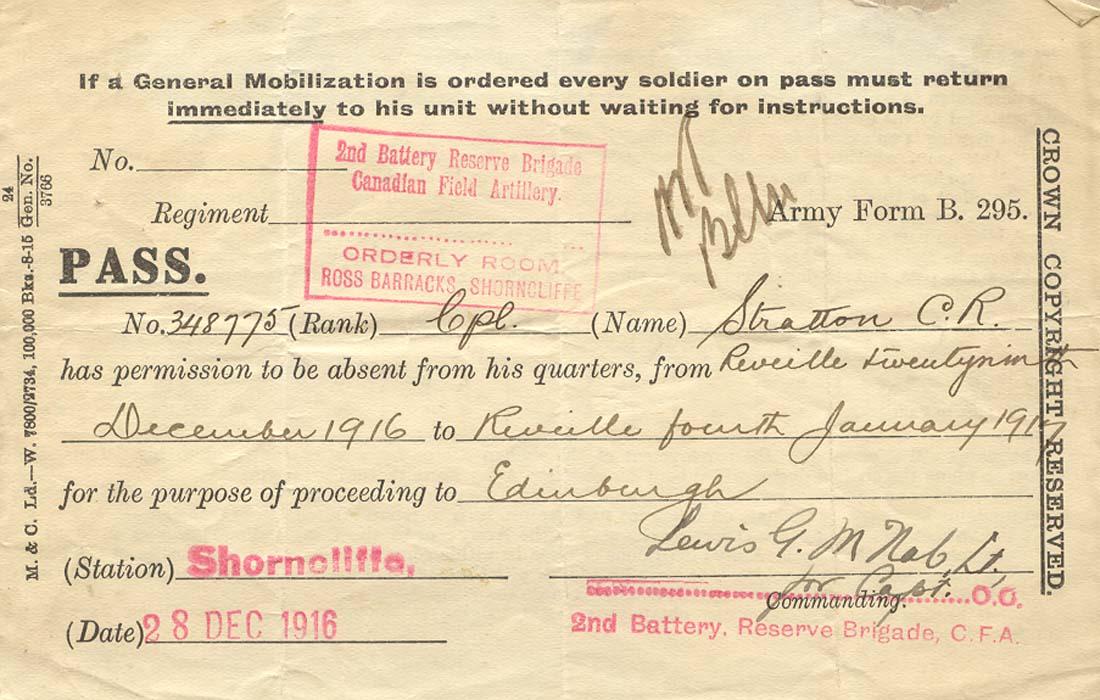 If a General Mobilization is ordered every soldier on pass must return
immediately to his unit without waiting for instructions.
No.
2nd Battery Reserve Brigade
Canadian Field Artillery.
Regiment
Army Form B. 295.
ORDERLY ROOM
ROSS BARRACKS, SHORNCLIFFE
PASS.
No. 348775 (Rank) Cpl. (Name) Stratton C.R.
has permission to be absent from his quarters, from Reveille twentyninth
December 1916 to Reveille fourth January 1917
for the purpose of proceeding to Edinburgh
Lewis G. McNab, Lt.
(Station) Shorncliffe,
for Capt.
Commanding. O.C.
(Date) 28 DEC 1916
2nd Battery, Reserve Brigade, C.F.A.
M. & C. Ld.—W. 7800/2734, 100,000 Bks.-8-15 24 Gen. No. 3766
CROWN COPYRIGHT RESERVED.